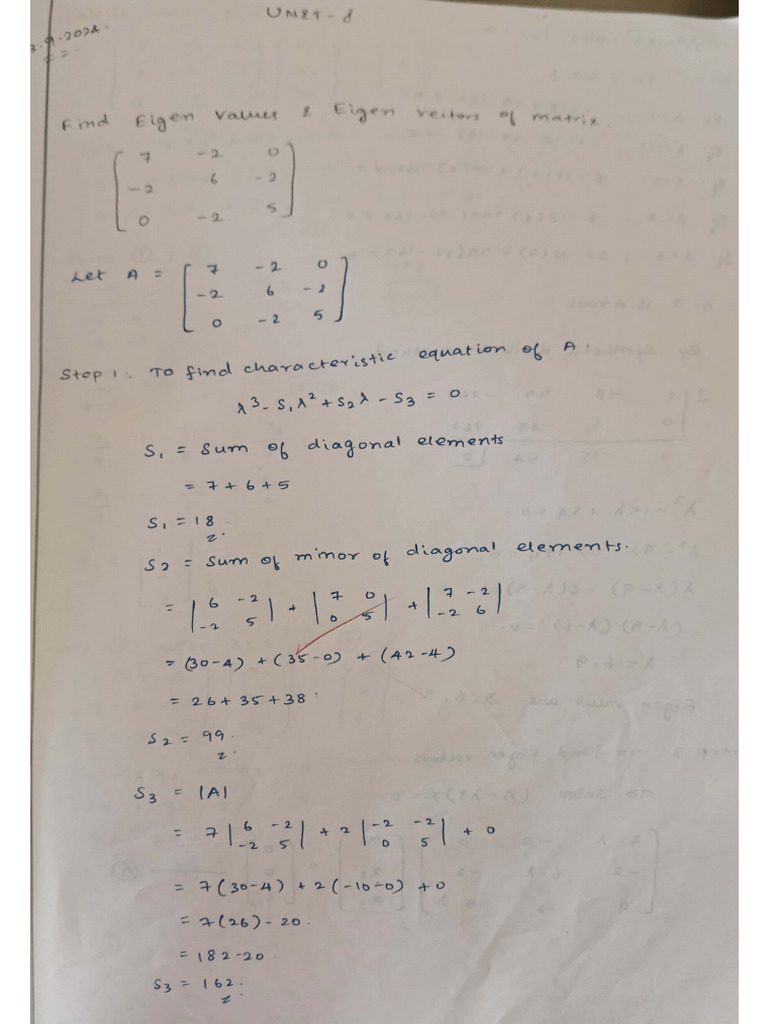 UNIT-8
.9.2024.
Find Eigen values & Eigen vectors of matrix.
[ 7 -2 0
-2 6 -2
0 -2 5 ]
Let A = [ 7 -2 0
-2 6 -2
0 -2 5 ]
Step 1: To find characteristic equation of A
λ³ - S₁λ² + S₂λ - S₃ = 0
S₁ = Sum of diagonal elements
= 7 + 6 + 5
S₁ = 18.
S₂ = Sum of minor of diagonal elements.
= | 6 -2 | + | 7 0 | + | 7 -2 |
| -2 5 | | 0 5 | | -2 6 |
= (30-4) + (35-0) + (42-4)
= 26 + 35 + 38.
S₂ = 99.
S₃ = |A|
= 7 | 6 -2 | + 2 | -2 -2 | + 0
| -2 5 | | 0 5 |
= 7(30-4) + 2(-10-0) + 0
= 7(26) - 20.
= 182-20.
S₃ = 162.